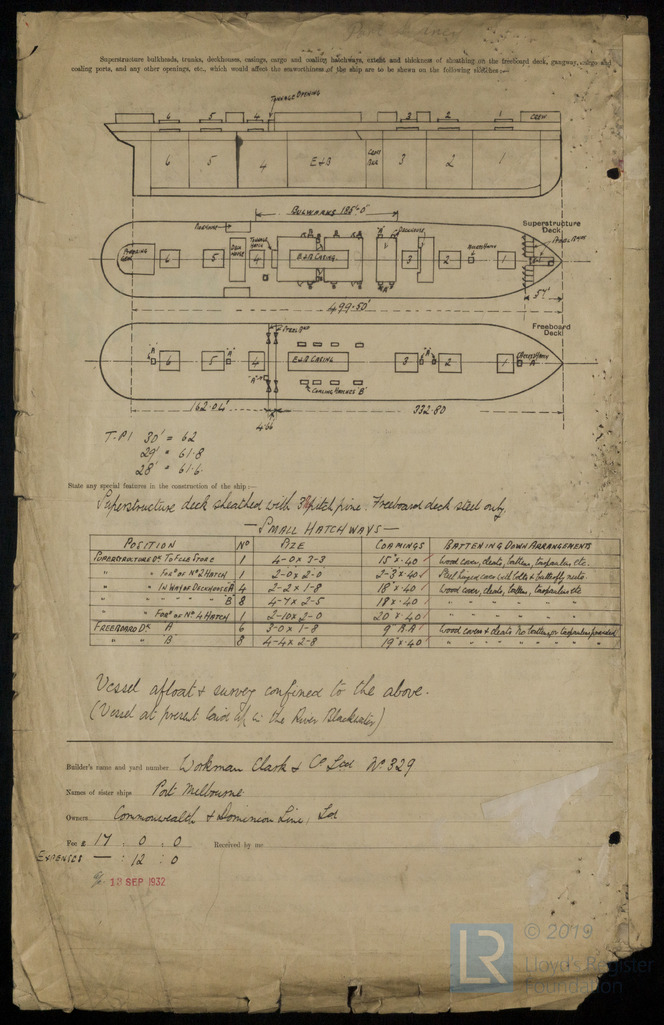 Superstructure bulkheads, trunks, deckhouses, casings, cargo and coaling hatchways, extent and thickness of sheathing on the freeboard deck, gangway, cargo and
coaling ports, and any other openings, etc., which would affect the seaworthiness of the ship are to be shown on the following sketches:—
TONNAGE OPENING
6 5 4 3 2 1 CREW
6 5 4 E&B 3 2 1
BULWARKS 185'-0"
Superstructure
Deck
6 5 4 E&B CASING 3 2 1
57'
499·50'
Freeboard
Deck
STEEL
"A" 6 5 "A" 4 E&B CASING 3 "A" 2 1
"A" COALING HATCHES "B"
162·04' 332·80
4·66
T.P.I 30' = 62
29' = 61·8
28' = 61·6
State any special features in the construction of the ship:—
Superstructure deck sheathed with pitch pine. Freeboard deck steel only.
— SMALL HATCHWAYS —
POSITION No SIZE COAMINGS BATTENING DOWN ARRANGEMENTS
SUPERSTRUCTURE DK. TO FCLE STORE 1 4-0 x 3-3 15" x ·40 Wood cover, cleats, battens, tarpaulins etc.
" " FORD OF No 2 HATCH 1 2-0 x 2-0 2-3 x ·40 Steel hinged cover bolts & butterfly nuts
" " IN WAY OF DECKHOUSE "A" 4 2-2 x 1-8 18" x ·40 Wood cover, cleats, battens, tarpaulins etc
" " " " "B" 8 4-7 x 2-5 18 x ·40 " " " "
" " FORD OF No 4 HATCH 1 2-10 x 2-0 20" x ·40 " " " "
FREEBOARD DK A 6 3-0 x 1-8 9" B.A. Wood covers & cleats no battens or tarpaulins provided
" " B 8 4-4 x 2-8 19" x ·40 " " " " " " "
Vessel afloat & survey confined to the above.
(Vessel at present laid up in the River Blackwater)
Builder's name and yard number Workman Clark & Co Ltd No. 329
Names of sister ships Port Melbourne
Owners Commonwealth & Dominion Line, Ltd
Fee £ 17 : 0 : 0 Received by me
EXPENSES — : 12 : 0
13 SEP 1932
LR © 2019
Lloyd's Register
Foundation